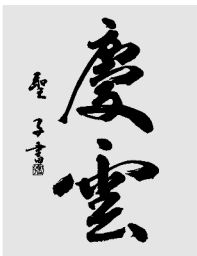 慶雲
聖子書